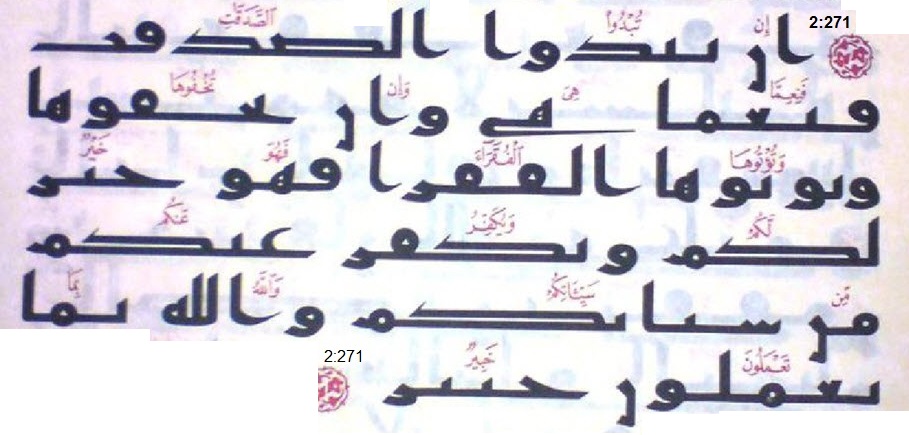 2:271
إِن تُبْدُوا الصَّدَقَٰتِ
ان تبدوا الصدقت
فَنِعِمَّا هِىَ وَإِن تُخْفُوهَا
فنعما هى وان تخفوها
وَتُؤْتُوهَا الْفُقَرَآءَ فَهُوَ خَيْرٌ
وتوتوها الفقرا فهو خير
لَّكُمْ وَيُكَفِّرُ عَنكُم
لكم ويكفر عنكم
مِّن سَيِّئَاتِكُمْ وَاللَّهُ بِمَا
من سياتكم والله بما
تَعْمَلُونَ خَبِيرٌ
تعملون خبير
2:271